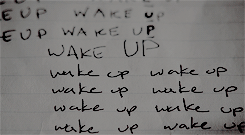 EUP WAKE UP
EUP WAKE UP
WAKE UP
wake up wake up
wake up wake up
wake up wake up
wake up wake up